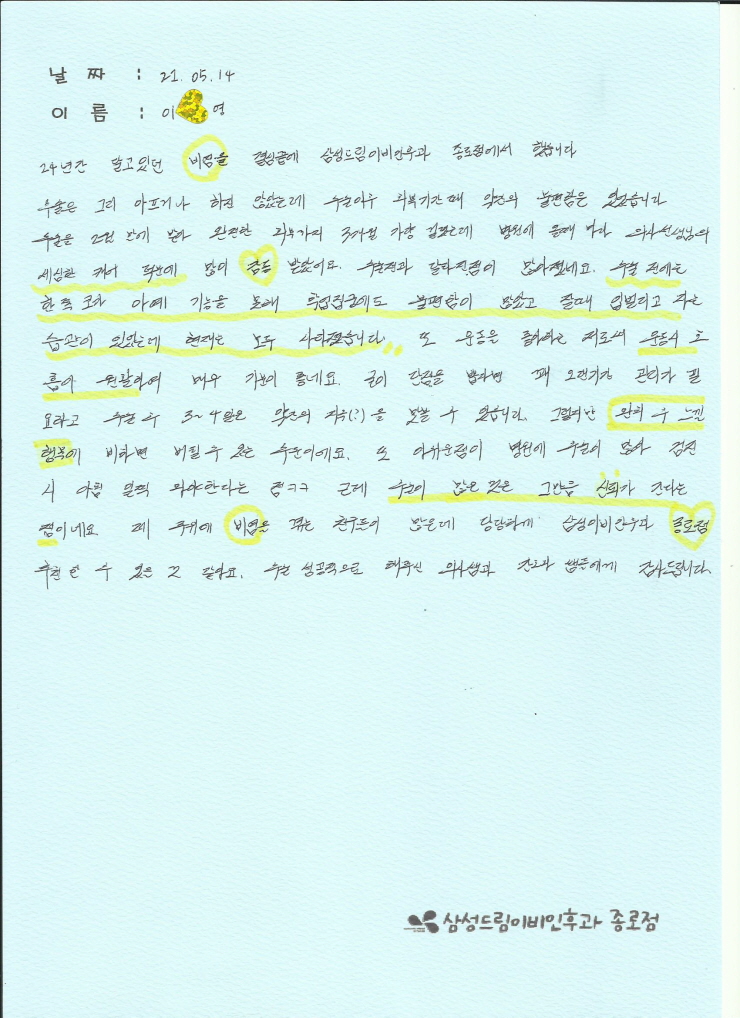 날 짜 : 21. 05. 14
이 름 : 이 영
24년간 앓고있던 비염을 결심끝에 삼성드림이비인후과 종로점에서 했습니다
수술은 그리 아프거나 하진 않았는데 수술이후 회복기간 때 약간의 불편함은 있었습니다
수술을 2월 말에 받아 완전한 회복까지 3개월 가량 걸렸는데 병원에 올때 마다 의사선생님의
세심한 케어 덕분에 많이 감동 받았어요. 수술전과 달라진점이 많아졌네요. 수술 전에는
한쪽 코가 아예 기능을 못해 학업집중에도 불편함이 많았고 잘때 입벌리고 자는
습관이 있었는데 현재는 모두 사라졌습니다. 또 운동을 좋아하는 저로써 운동시 호
흡이 원활하여 매우 기분이 좋네요. 굳이 단점을 뽑자면 꽤 오랜기간 관리가 필
요하고 수술 후 3~4일은 약간의 지옥(?)을 맛볼 수 있습니다. 그렇지만 완치 후 느낄
행복에 비하면 버틸 수 있는 수준이에요. 또 아쉬운점이 병원에 수술이 많아 검진
시 아침 일찍 와야한다는 점ㅋㅋ 근데 수술이 많은 것은 그만큼 신뢰가 간다는
점이네요. 제 주위에 비염을 겪는 친구들이 많은데 당당하게 삼성이비인후과 종로점
추천 할 수 있을 것 같아요. 수술 성공적으로 해주신 의사쌤과 간호사 쌤들에게 감사드립니다.
삼성드림이비인후과 종로점